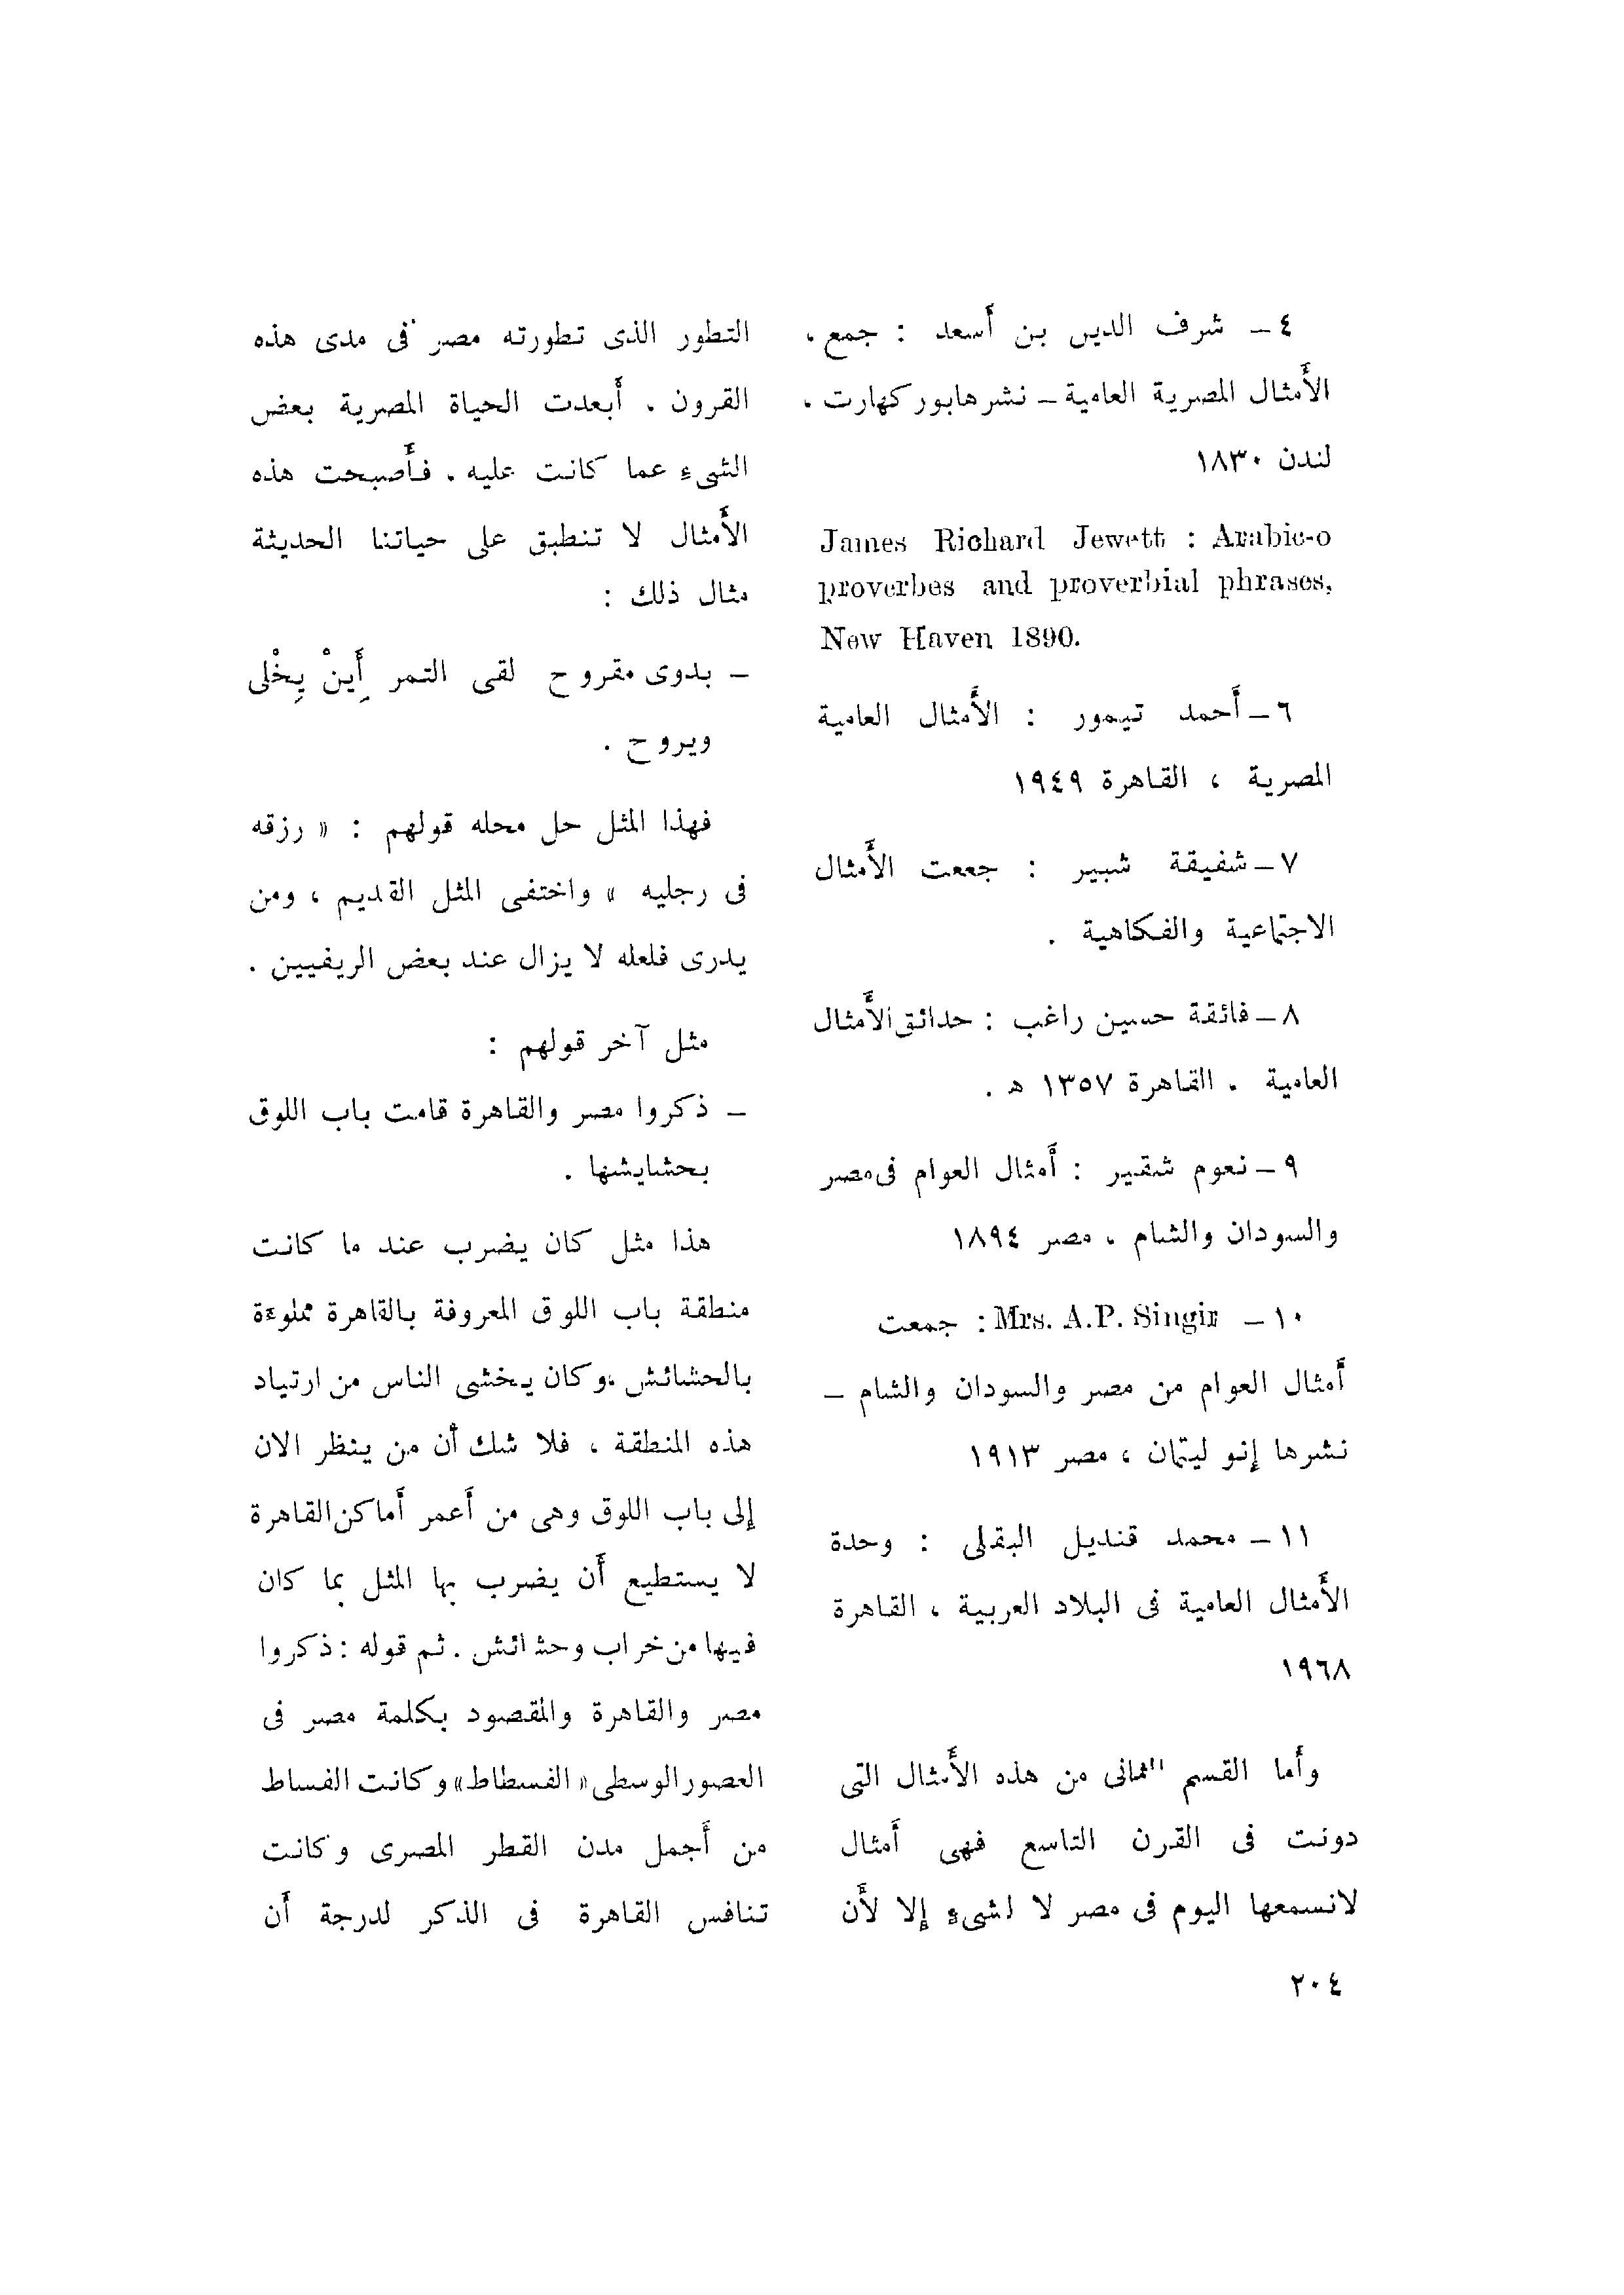 ٤ – شرف الدين بن أسعد : جمع ،
الأمثال المصرية العامية – نشرها بور كهارت ،
لندن ١٨٣٠
James Richard Jewett : Arabic-o
proverbes and proverbial phrases,
New Haven 1890.
٦ – أحمد تيمور : الأمثال العامية
المصرية ، القاهرة ١٩٤٩
٧ – شفيقة شبير : جععت الأمثال
الاجتماعية والفكاهية .
٨ – فائقة حسين راغب : حدائق الأمثال
العامية . القاهرة ١٣٥٧ ه .
٩ – نعوم شقير : أمثال العوام فى مصر
والسودان والشام ، مصر ١٨٩٤
١٠ – Mrs. A.P. Singir : جمعت
أمثال العوام من مصر والسودان والشام –
نشرها إنو ليتمان ، مصر ١٩١٣
١١ – محمد قنديل البقلى : وحدة
الأمثال العامية فى البلاد العربية ، القاهرة
١٩٦٨
وأما القسم الثانى من هذه الأمثال التى
دونت فى القرن التاسع فهى أمثال
لانسمعها اليوم فى مصر لا لشىء إلا لأن
التطور الذى تطورته مصر فى مدى هذه
القرون . أبعدت الحياة المصرية بعض
الشىء عما كانت عليه . فأصبحت هذه
الأمثال لا تنطبق على حياتنا الحديثة
مثال ذلك :
– بدوى مقروح لقى التمر أَينْ يِخْلى
ويروح .
فهذا المثل حل محله قولهم : « رزقه
فى رجليه » واختفى المثل القديم ، ومن
يدرى فلعله لا يزال عند بعض الريفيين .
مثل آخر قولهم :
– ذكروا مصر والقاهرة قامت باب اللوق
بحشايشها .
هذا مثل كان يضرب عند ما كانت
منطقة باب اللوق المعروفة بالقاهرة مملوءة
بالحشائش ،وكان يخشى الناس من ارتياد
هذه المنطقة ، فلا شك أن من ينظر الان
إلى باب اللوق وهى من أعمر أماكن القاهرة
لا يستطيع أن يضرب بها المثل بما كان
فيها من خراب وحشائش . ثم قوله : ذكروا
مصر والقاهرة والمقصود بكلمة مصر فى
العصور الوسطى « الفسطاط » وكانت الفساط
من أجمل مدن القطر المصرى وكانت
تنافس القاهرة فى الذكر لدرجة أن
٢٠٤